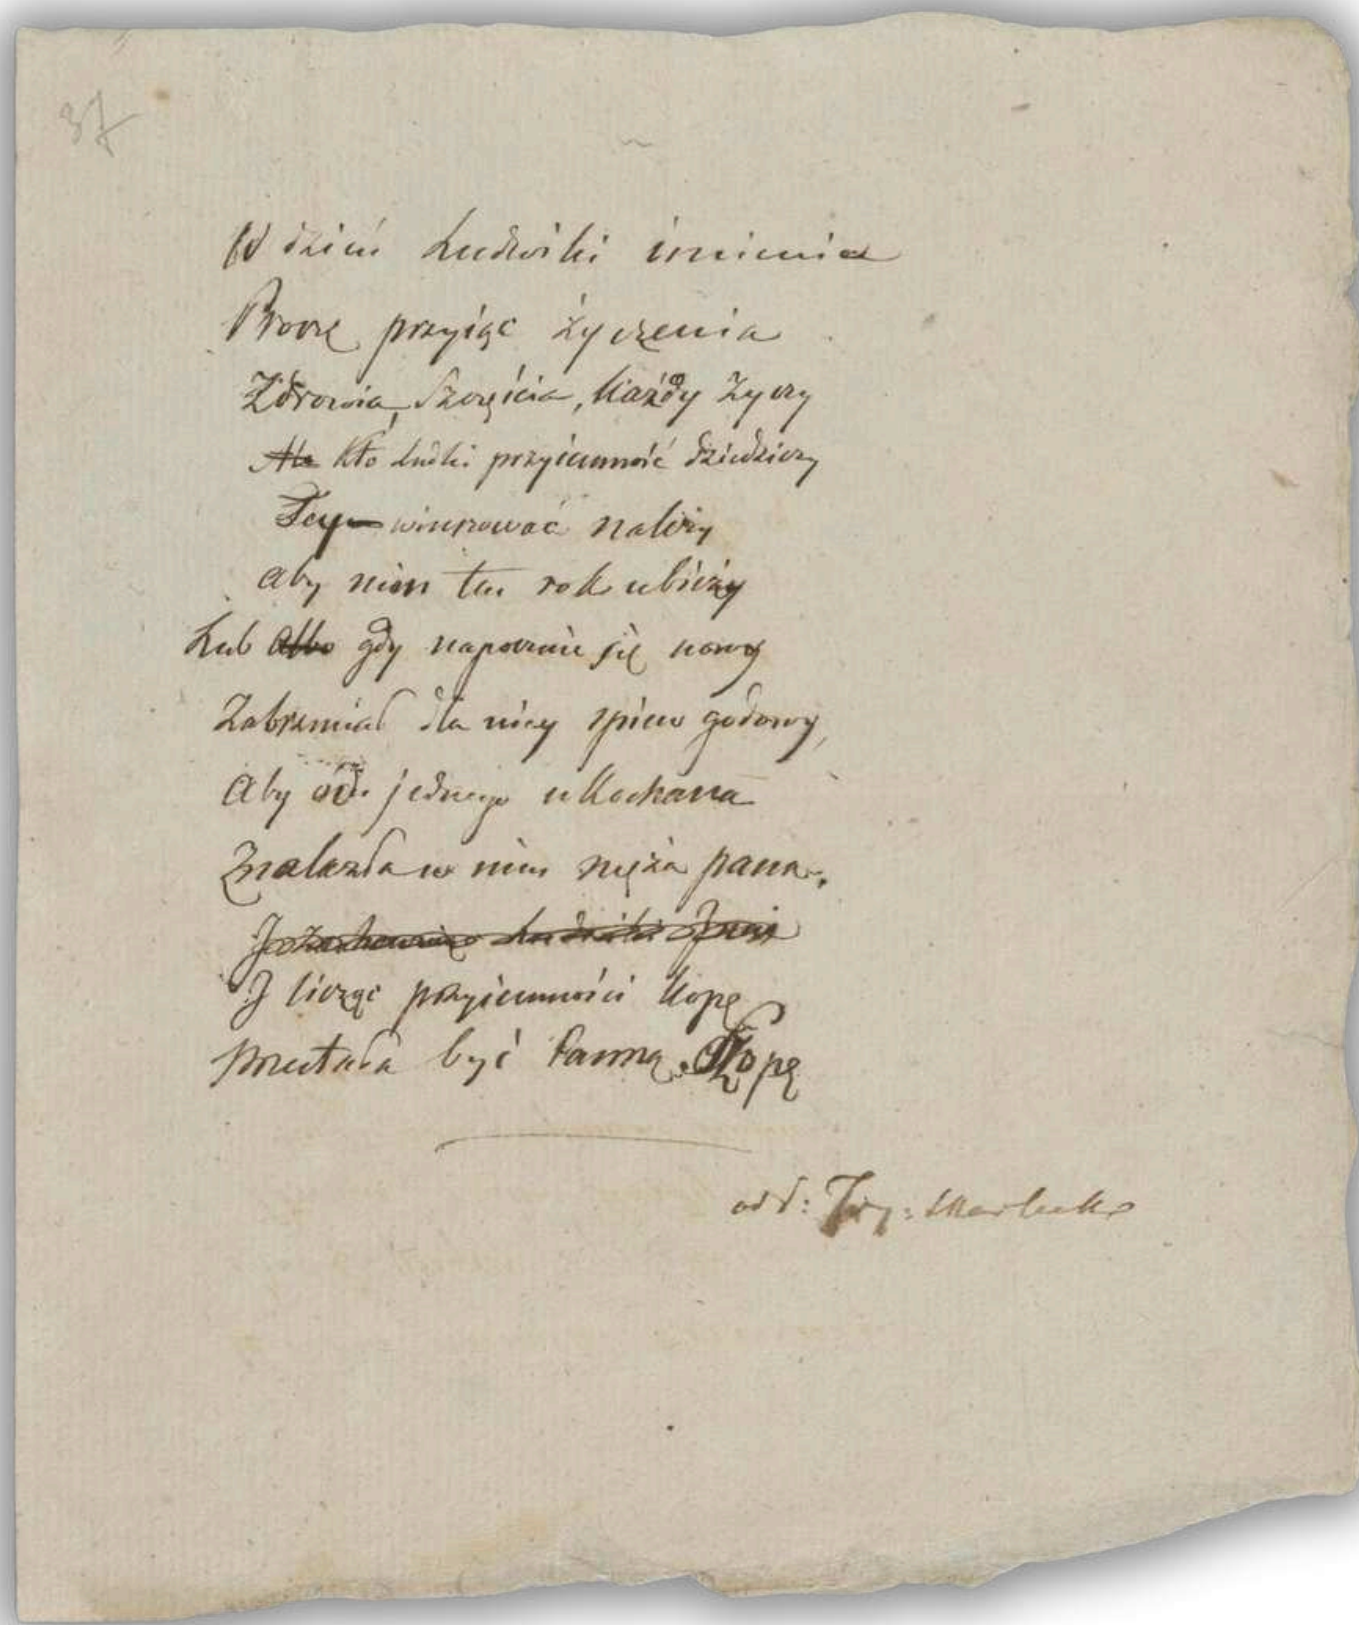 37
W dzień Ludwiki imienia
Proszę przyiąć życzenia
Zdrowia, Szczęścia, każdy życzy
Ale Kto Ludki przyiemność dziedziczy
Tey winszować należy
Aby nim ten rok ubieży
Lub Albo gdy napocznie się nowy
Zabrzmiał dla niey spiew godowy,
Aby od jednego ukochana
Znalazła w nim męża pana.
Ludwiki
J licząc przyiemności kopę
Przestała być Panną Kopę
od F: Skarbek